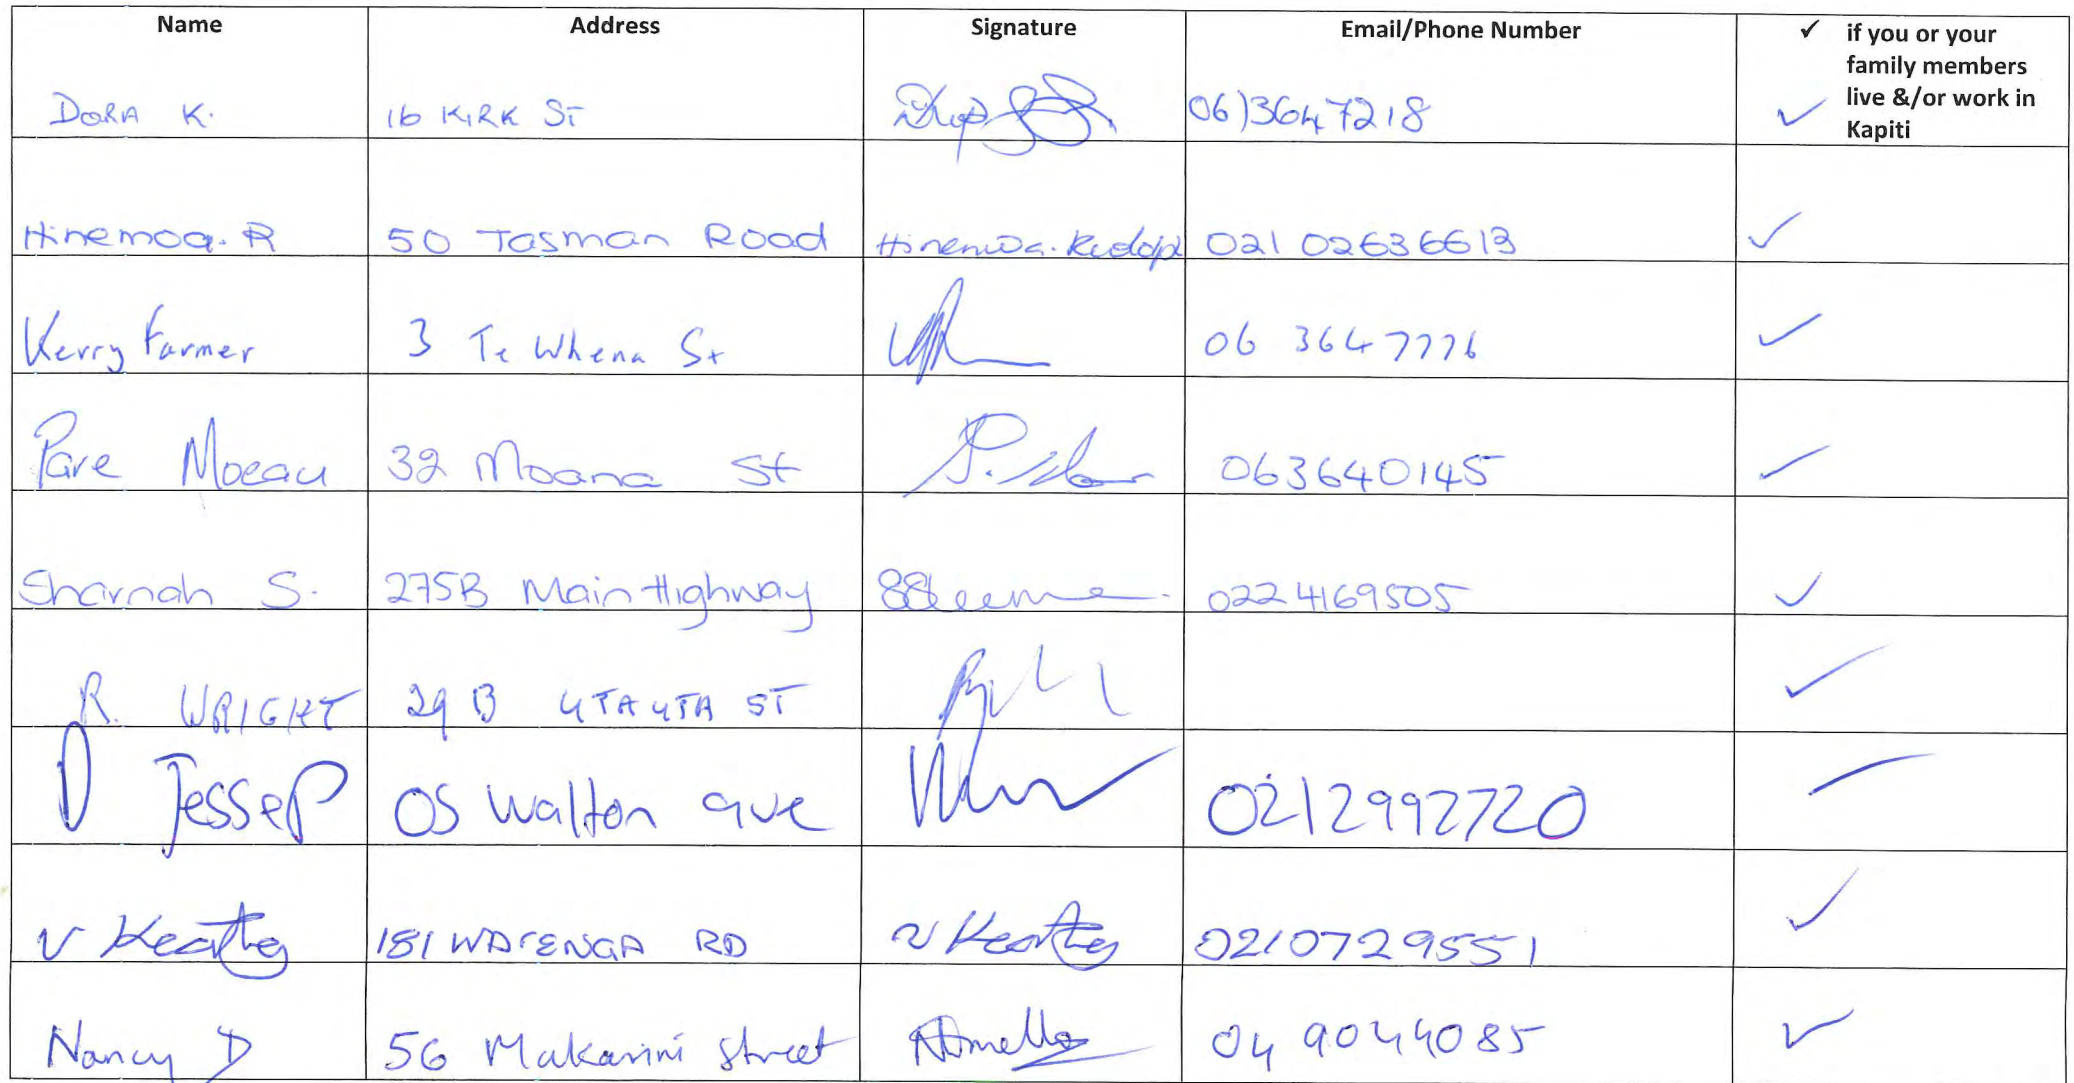 Name Address Signature Email/Phone Number ✓ if you or your
family members
live &/or work in
Kapiti
DORA K. 16 KIRK ST 06)3647218 ✓
Hinemoa. R 50 Tasman Road Hinemoa. 021 02636613 ✓
Kerry Farmer 3 Te Whena St 06 3647776 ✓
Pare Moeau 32 Moana St 0636400145 ✓
Sharnah S. 275B Main Highway 0224169505 ✓
R. WRIGHT 29 B UTAUTA ST ✓
D Jessep 05 Walton ave 0212992720
V Keating 181 RD V Keating 0210729551 ✓
Nancy D 56 Makarini Street 04 9044085 ✓